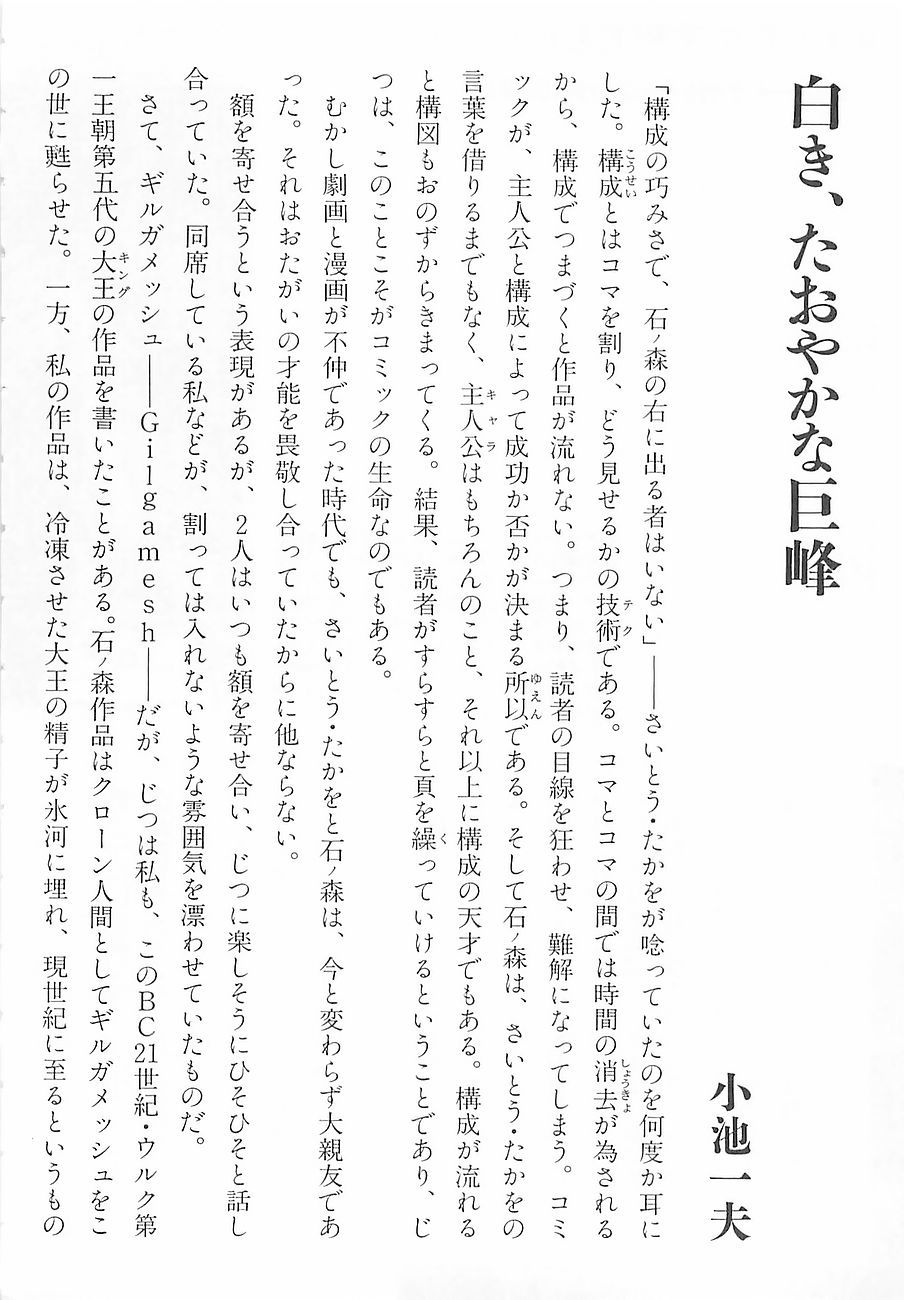 白き、たおやかな巨峰
小池一夫
「構成の巧みさで、石ノ森の右に出る者はいない」――さいとう・たかをが唸っていたのを何度か耳に
した。構成とはコマを割り、どう見せるかの技術である。コマとコマの間では時間の消去が為される
から、構成でつまづくと作品が流れない。つまり、読者の目線を狂わせ、難解になってしまう。コミ
ックが、主人公と構成によって成功か否かが決まる所以である。そして石ノ森は、さいとう・たかをの
言葉を借りるまでもなく、主人公はもちろんのこと、それ以上に構成の天才でもある。構成が流れる
と構図もおのずからきまってくる。結果、読者がすらすらと頁を繰っていけるということであり、じ
つは、このことこそがコミックの生命なのでもある。
むかし劇画と漫画が不仲であった時代でも、さいとう・たかをと石ノ森は、今と変わらず大親友であ
った。それはおたがいの才能を畏敬し合っていたからに他ならない。
額を寄せ合うという表現があるが、2人はいつも額を寄せ合い、じつに楽しそうにひそひそと話し
合っていた。同席している私などが、割っては入れないような雰囲気を漂わせていたものだ。
さて、ギルガメッシュ――Gilgamesh――だが、じつは私も、このBC21世紀・ウルク第
一王朝第五代の大王の作品を書いたことがある。石ノ森作品はクローン人間としてギルガメッシュをこ
の世に甦らせた。一方、私の作品は、冷凍させた大王の精子が氷河に埋れ、現世紀に至るというもの